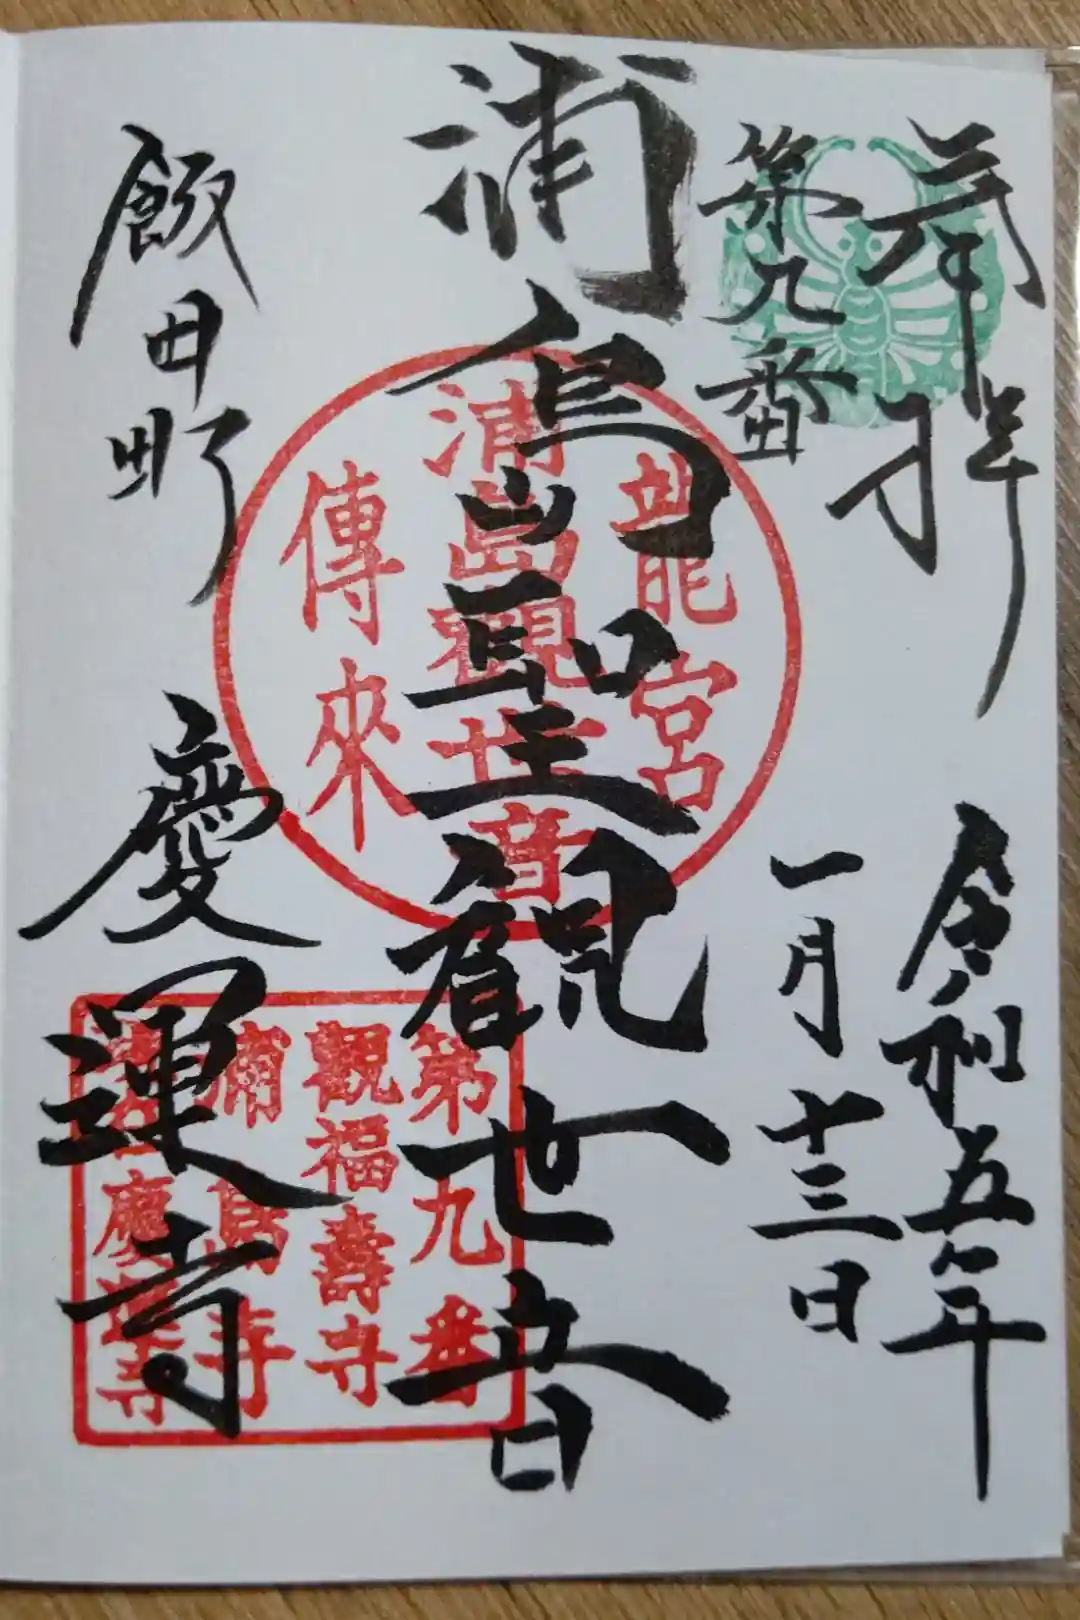 奉拝
令和五年
第九番
一月十三日
浦島聖観世音
飯田町
慶運寺
龍宮
浦島觀世音
傳來
第九番
觀福壽寺
浦島寺
慶運寺